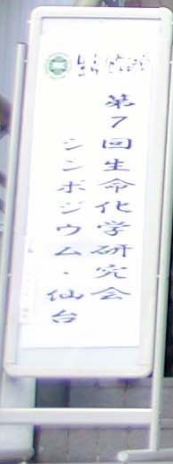 第7回生命化学研究会
シンポジウム・仙台